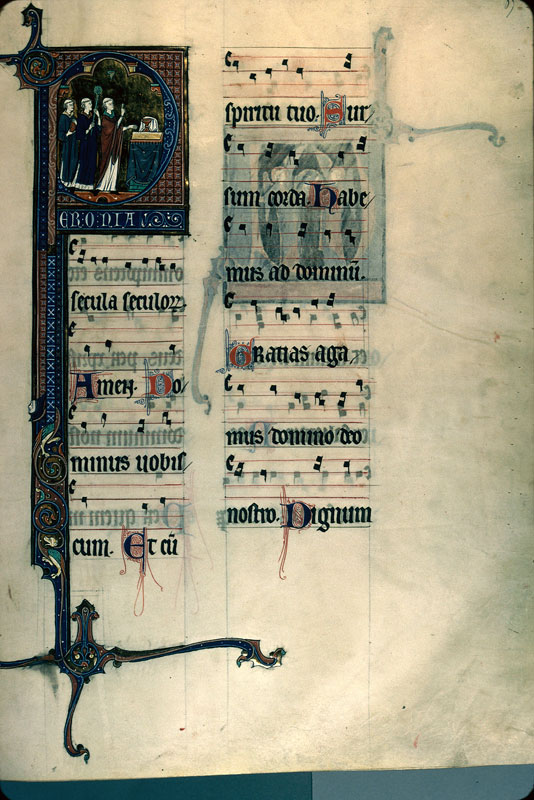 PER OMNIA
secula seculoꝝ
Amen. Do
minus uobis
cum. Et cū
spiritu tuo. Sur
sum corda. Habe
mus ad dominū.
Gratias aga
mus domino deo
nostro. Dignum